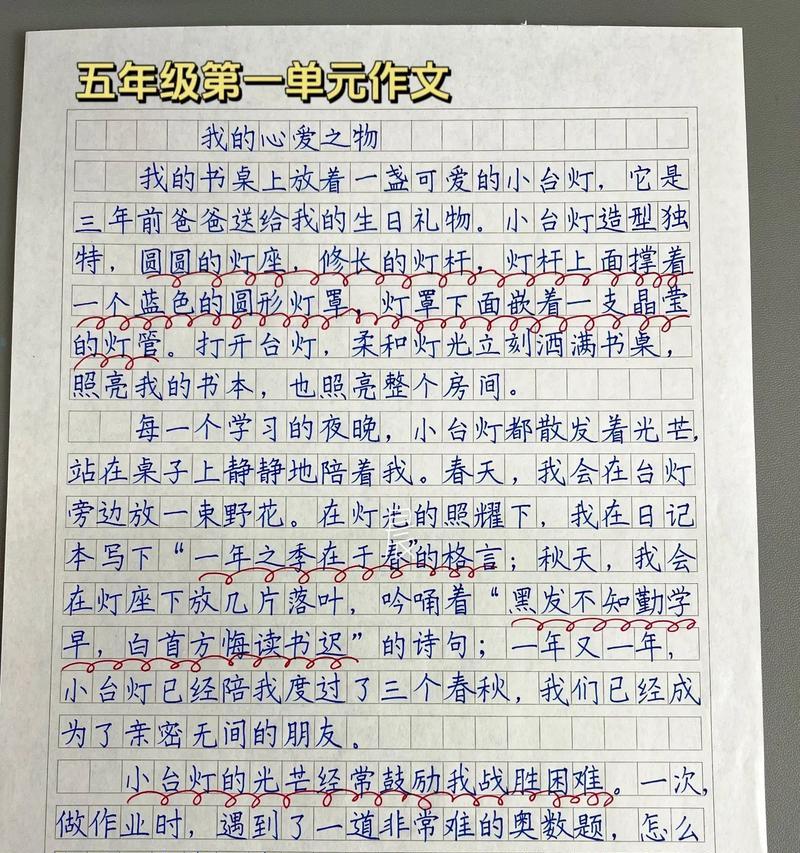 五年级第一单元作文
我的心爱之物
我的书桌上放着一盏可爱的小台灯，它是
三年前爸爸送给我的生日礼物。小台灯造型独
特，圆圆的灯座，修长的灯杆，灯杆上面撑着
一个蓝色的圆形灯罩，灯罩下面嵌着一支晶莹
的灯管。打开台灯，柔和灯光立刻洒满书桌，
照亮我的书本，也照亮整个房间。
每一个学习的夜晚，小台灯都散发着光芒，
站在桌子上静静地陪着我。春天，我会在台灯
旁边放一束野花。在灯光的照耀下，我在日记
本写下“一年之季在于春”的格言；秋天，我会
在灯座下放几片落叶，吟诵着“黑发不知勤学
早，白首方悔读书迟”的诗句；一年又一年，
小台灯已经陪我度过了三个春秋，我们已经成
为了亲密无间的朋友。
小台灯的光芒经常鼓励我战胜困难。一次，
做作业时，遇到了一道非常难的奥数题，怎么